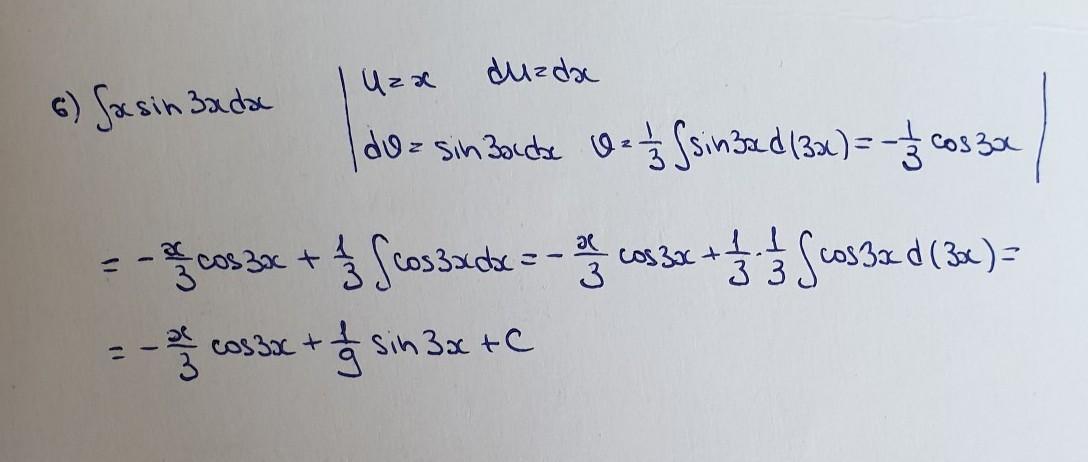 6) ∫x sin 3x dx | u = x du = dx
| dv = sin 3x dx v = 1/3 ∫ sin 3x d(3x) = -1/3 cos 3x |
= - x/3 cos 3x + 1/3 ∫ cos 3x dx = - x/3 cos 3x + 1/3 · 1/3 ∫ cos 3x d(3x) =
= - x/3 cos 3x + 1/9 sin 3x + C